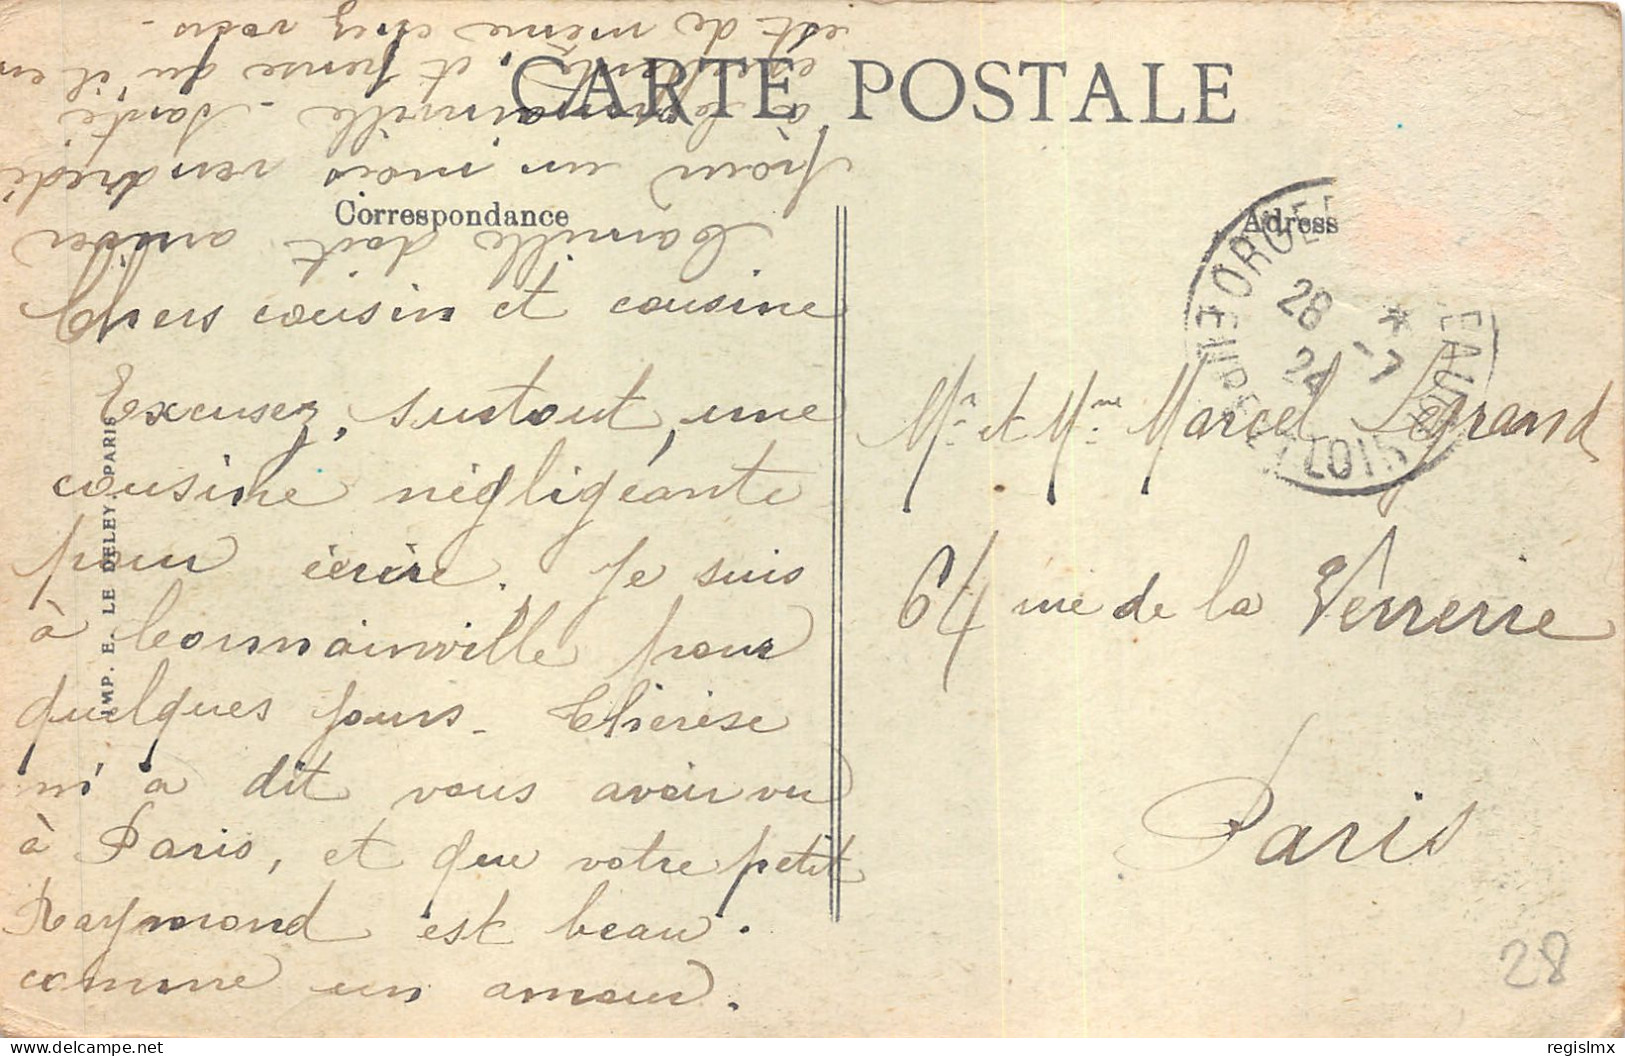 CARTE POSTALE
Correspondance
Adress
Chers cousin et cousine
Excusez, surtout, une
cousine négligeante
pour écrire. Je suis
à Cormainville pour
quelques jours. Thérèse
m'a dit vous avoir vu
à Paris, et que votre petit
Raymond est beau
comme un amour.
Camille doit arriver
pour un mois vendredi
à Cormainville - Santé
excellente, et pense qu'il en
est de même chez vous.
Mr et Mme Marcel Legrand
64 rue de la Verrerie
Paris
28
ORGUE
28 * -7
24
EURE ET LOIR
IMP. E. LE DELEY. PARIS
delcampe.net
regislmx